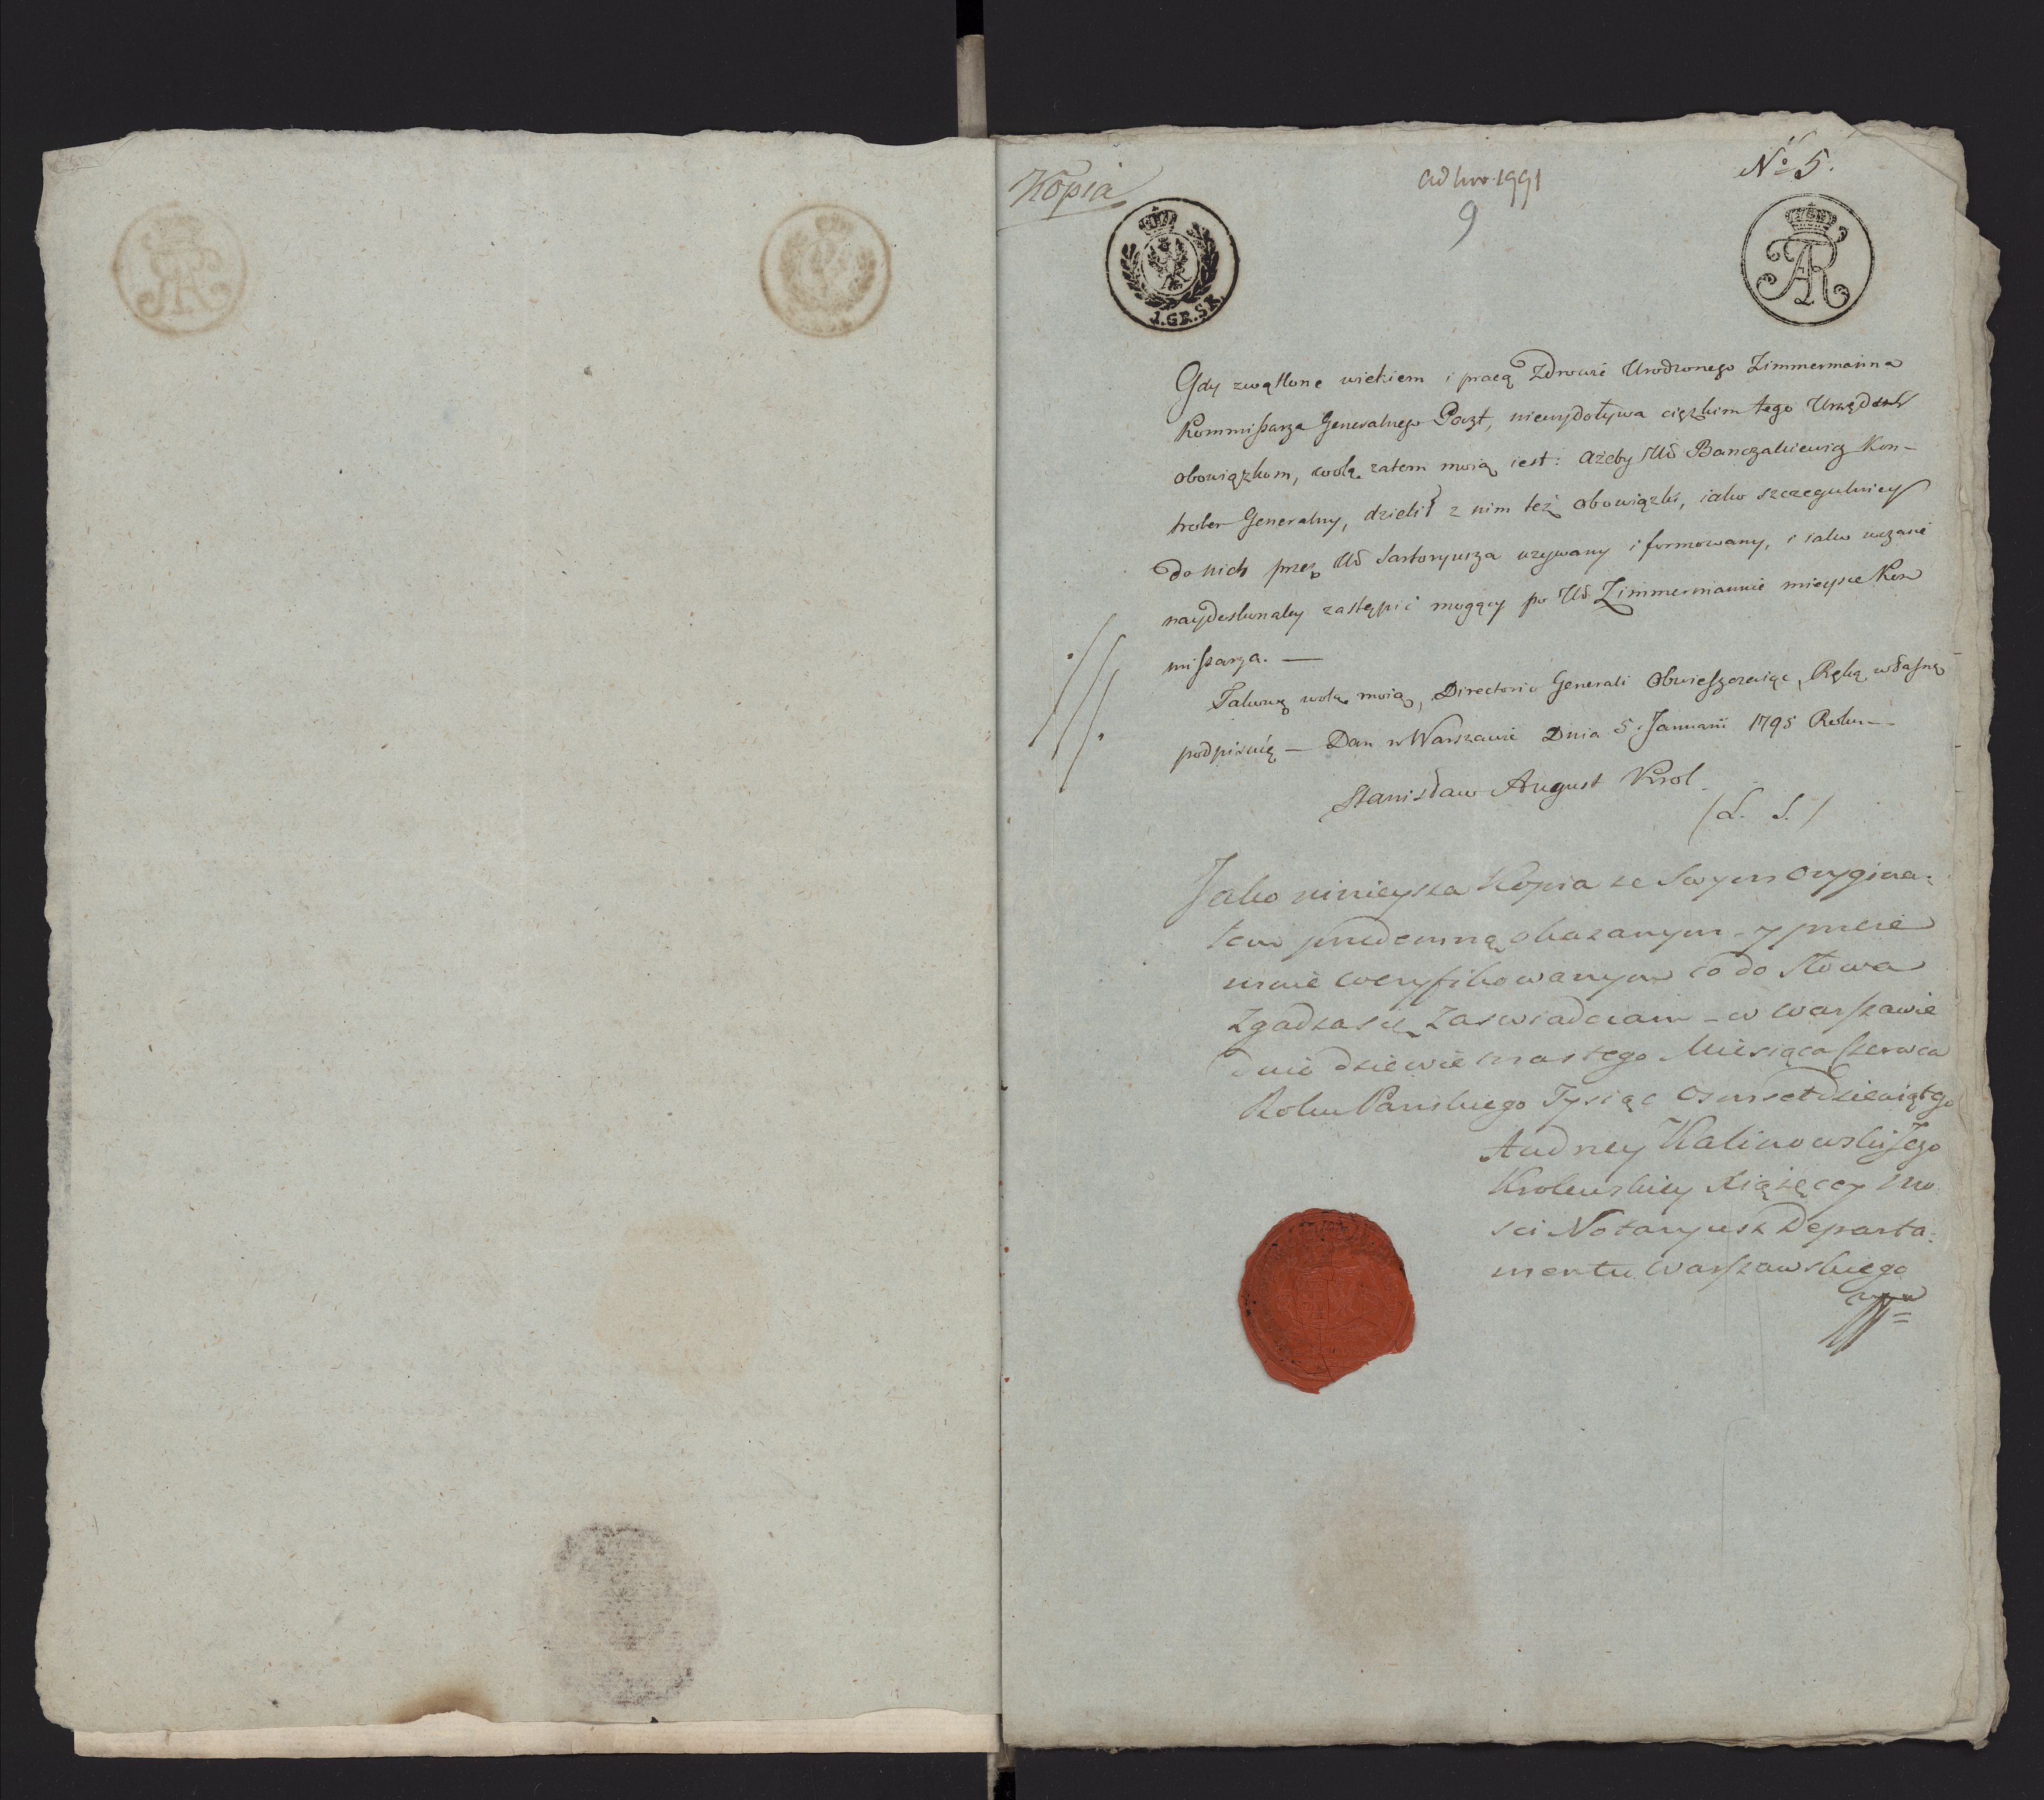 Kopia
ad Nro. 1991
No 5.
9
1.GR.SR.
AR
Gdy zwątlone wiekiem i pracą Zdrowie Urodzonego Zimmermanna
Kommissarza Generalnego Poczt, niewydoływa ciężkim tego Urzędu
obowiązkom, wolą zatem moią iest: ażeby Ur Banczakiewicz Kon-
troler Generalny, dzielił z nim też obowiązki, iako szczegulniey
do nich przez Ur Sartoryusza używany i formowany, i iako wczasie
naydoskonaley zastąpić mogący po Ur Zimmermannie mieysce Kom
missarza. —
Takową wolą moią, Directorio Generali Obwieszczaiąc, Ręką własną
podpisuię — Dan w Warszawie Dnia 5. Januarii 1795 Roku —
Stanisław August Krol.
/L. S./
Jako ninieysza Kopia ze Swym Orygina-
łem przedemną okazanym y przeze
mnie weryfikowanym co do Słowa
Zgadza się Zaswiadczam — w Warszawie
Dnia dziewietnastego Miesiąca Czerwca
Roku Panskiego Tysiąc Osmset Dziewiątego
Andrzey Kalinowski Jego
Krolewskiey Xiążęcey Mo
sci Notaryusz Departa-
mentu Warszawskiego